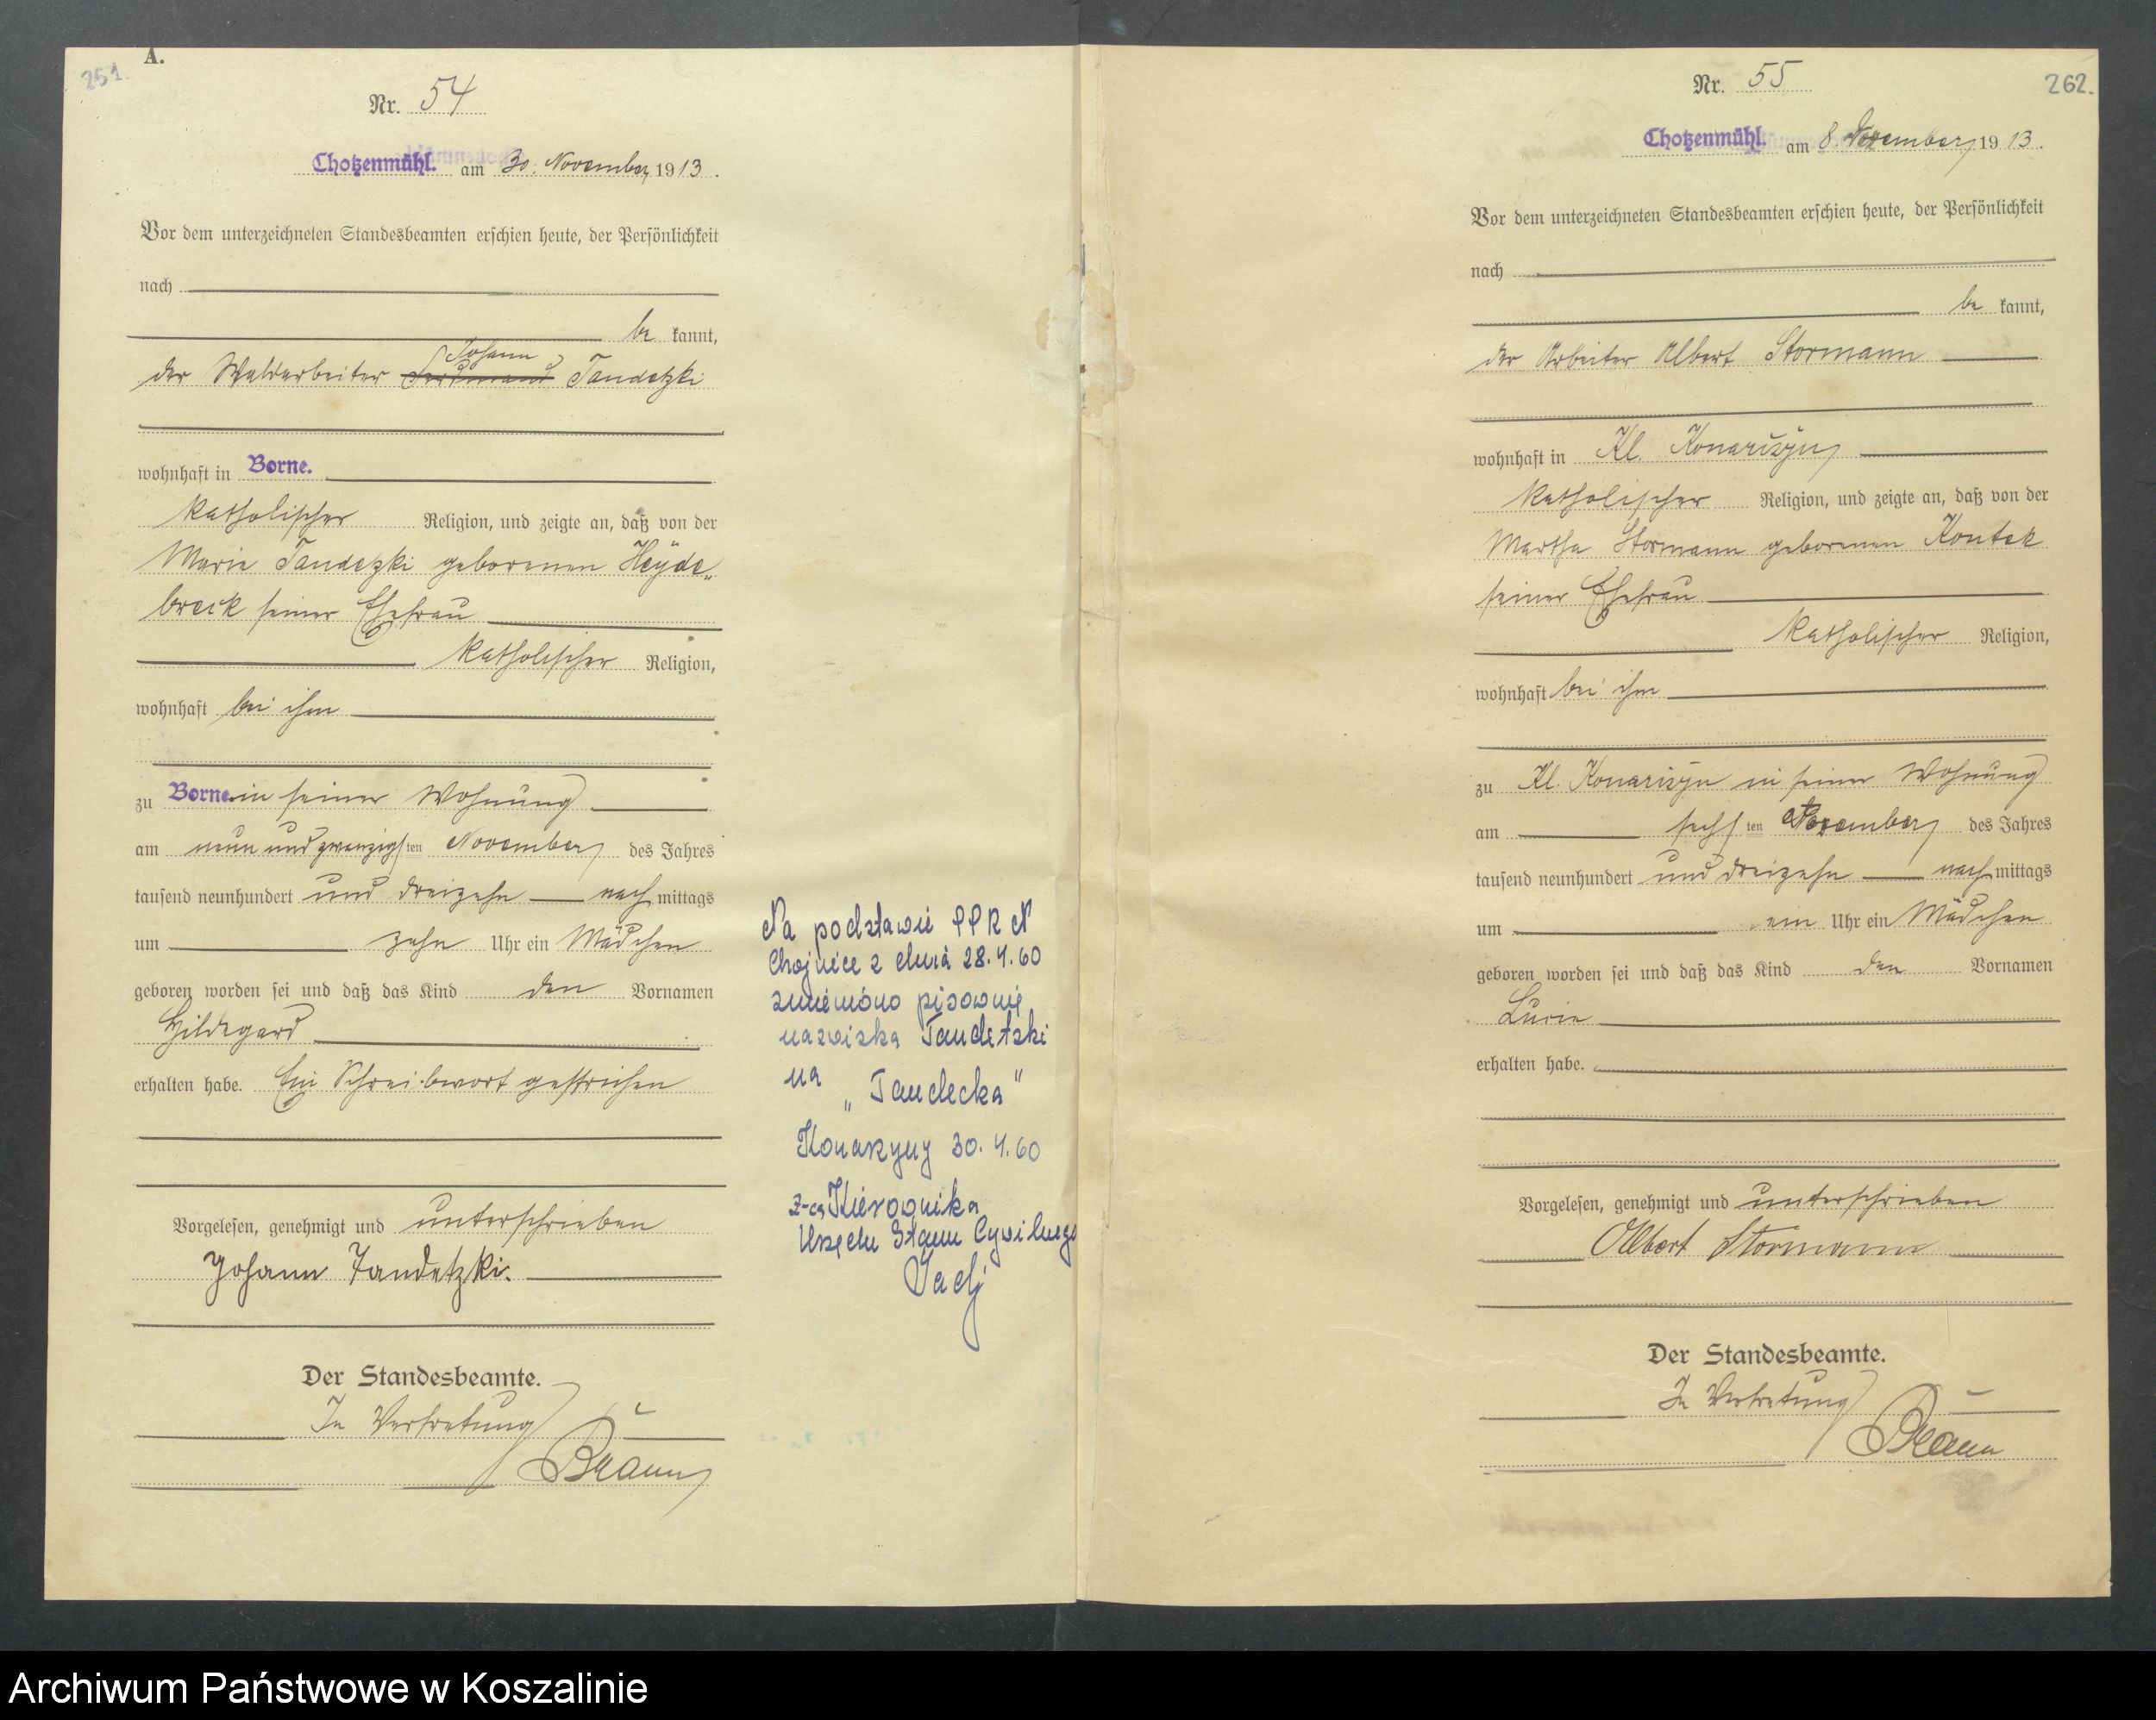 251.
A.
Nr. 54
Chotzenmühl. am 30. November 1913.
Vor dem unterzeichneten Standesbeamten erschien heute, der Persönlichkeit
nach
be kannt,
Johann
der Waldarbeiter Ferdinand Tandetzki
wohnhaft in Borne.
katholischer Religion, und zeigte an, daß von der
Marie Tandezki geborenen Heyde„
breck seiner Ehefrau
katholischer Religion,
wohnhaft bei ihm
zu Borne. in seiner Wohnung
am neun und zwanzigsten November des Jahres
tausend neunhundert und dreizehn nach mittags
um zehn Uhr ein Mädchen
geboren worden sei und daß das Kind den Vornamen
Hildegard
erhalten habe. Ein Schreibwort gestrichen
Vorgelesen, genehmigt und unterschrieben
Johann Tandetzki.
Der Standesbeamte.
In Vertretung
Braun
Na podstawie PPRN
Chojnice z dnia 28.4.60
zmieniono pisownię
nazwiska Tandetzki
na
„Tandecka"
Konarzyny 30.4.60
z-ca Kierownika
Urzędu Stanu Cywilnego
262.
Nr. 55
Chotzenmühl. am 8. Dezember 1913.
Vor dem unterzeichneten Standesbeamten erschien heute, der Persönlichkeit
nach
be kannt,
der Arbeiter Albert Stormann
wohnhaft in Kl. Konarczyn
katholischer Religion, und zeigte an, daß von der
Martha Stormann geborenen Kontek
seiner Ehefrau
katholischer Religion,
wohnhaft bei ihm
zu Kl. Konarczyn in seiner Wohnung
am sechsten Dezember des Jahres
tausend neunhundert und dreizehn nach mittags
um ein Uhr ein Mädchen
geboren worden sei und daß das Kind den Vornamen
Lucie
erhalten habe.
Vorgelesen, genehmigt und unterschrieben
Albert Stormann
Der Standesbeamte.
In Vertretung
Braun
Archiwum Państwowe w Koszalinie